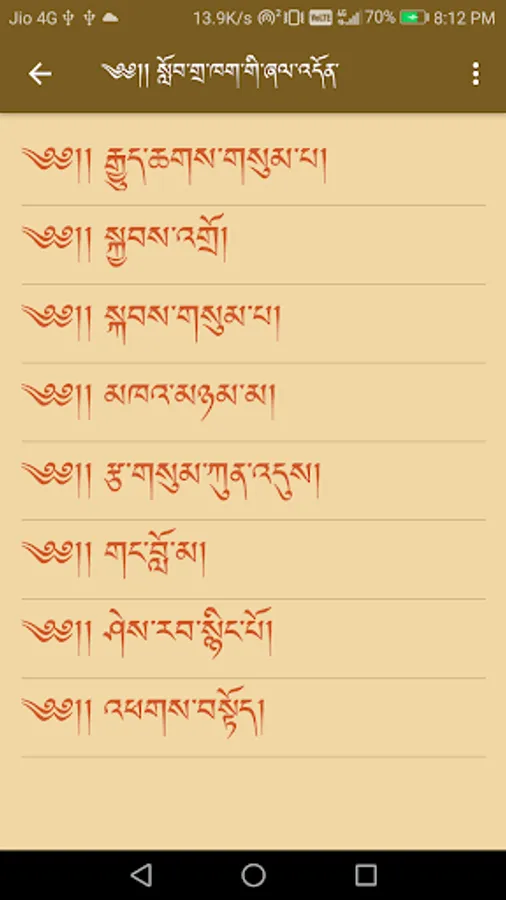 Jio 4G 13.9K/s VoLTE 70% 8:12 PM
༄༅།། སློབ་གྲྭ་ཁག་གི་ཞལ་འདོན་
༄༅།། རྒྱུད་ཆགས་གསུམ་པ།
༄༅།། སྐྱབས་འགྲོ།
༄༅།། སྐབས་གསུམ་པ།
༄༅།། མཁའ་མཉམ་མ།
༄༅།། རྩ་གསུམ་ཀུན་འདུས།
༄༅།། གང་བློ་མ།
༄༅།། ཤེས་རབ་སྙིང་པོ།
༄༅།། འཕགས་བསྟོད།